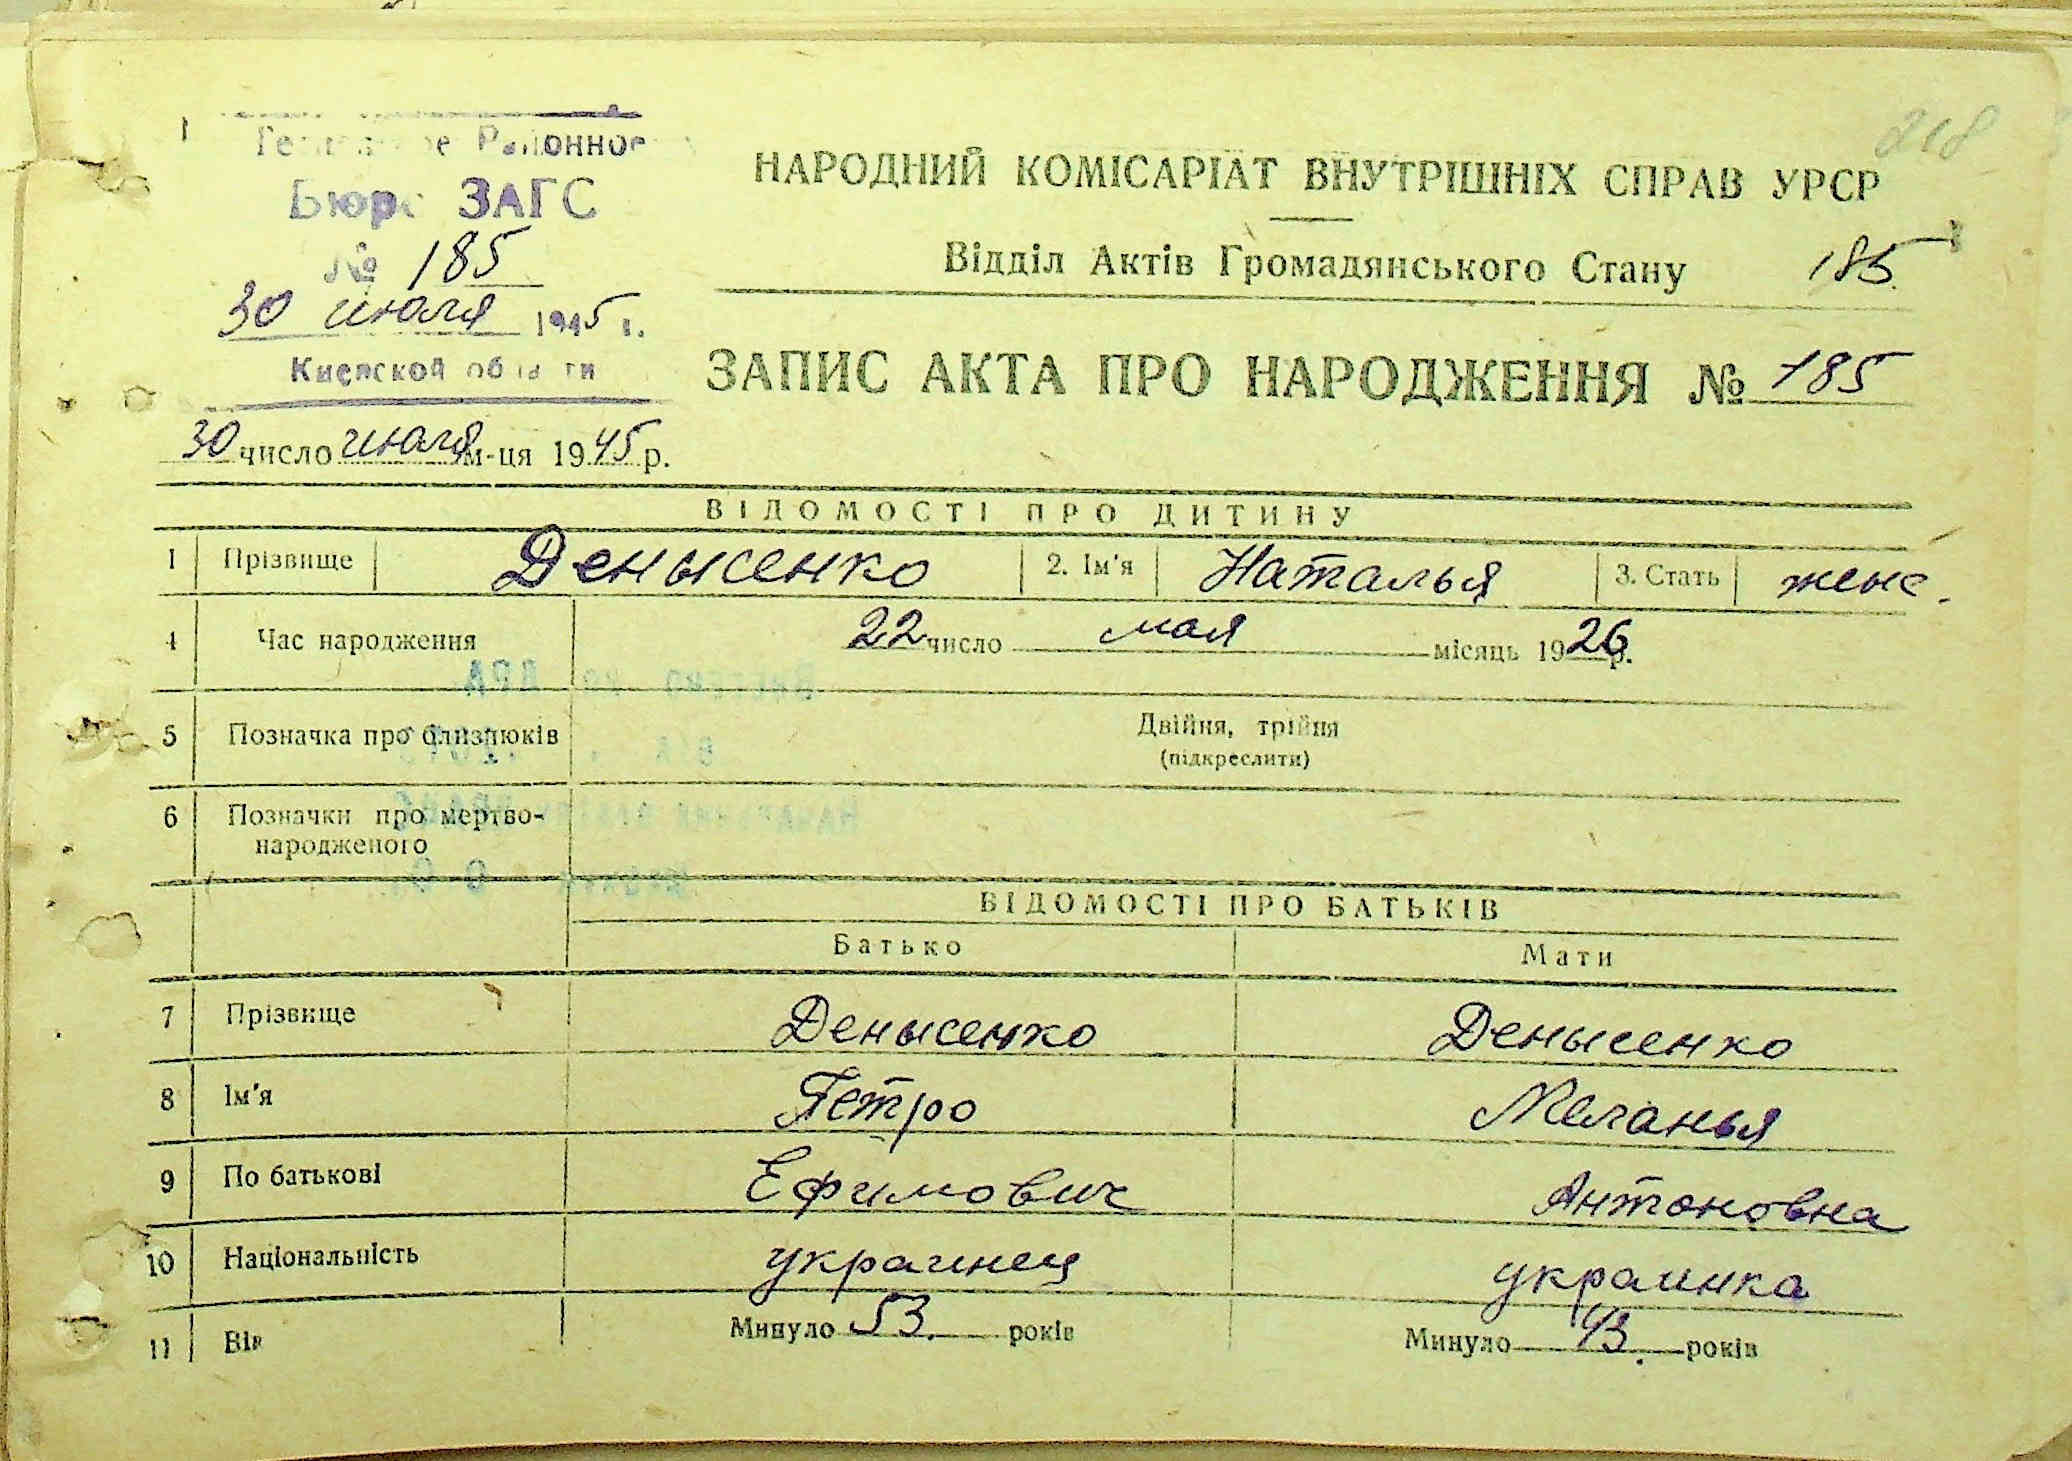 218
Районное
Бюро ЗАГС
№ 185
30 июля 1945 г.
Киевской области
НАРОДНИЙ КОМІСАРІАТ ВНУТРІШНІХ СПРАВ УРСР
Відділ Актів Громадянського Стану 185
ЗАПИС АКТА ПРО НАРОДЖЕННЯ № 185
30 число июля м-ця 1945 р.
ВІДОМОСТІ ПРО ДИТИНУ
1 Прізвище Денысенко 2. Ім'я Наталья 3. Стать женс.
4 Час народження 22 число мая місяць 1926 р.
5 Позначка про близнюків Двійня, трійня
(підкреслити)
6 Позначки про мертво-
народженого
ВІДОМОСТІ ПРО БАТЬКІВ
Батько Мати
7 Прізвище Денысенко Денысенко
8 Ім'я Петро Меланья
9 По батькові Ефимович Антоновна
10 Національність украинец украинка
11 Вік Минуло 53. років Минуло 43. років